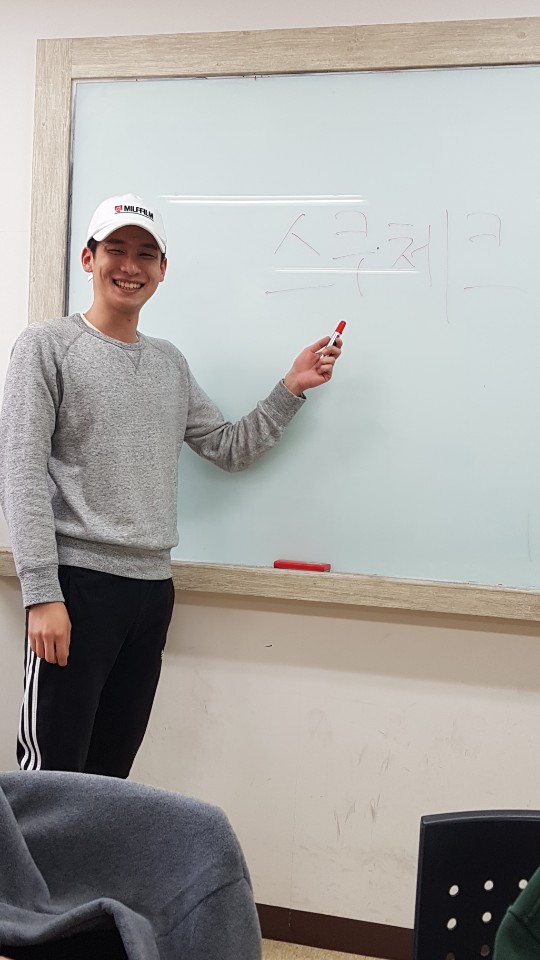 MILFFILM
스쿠체크